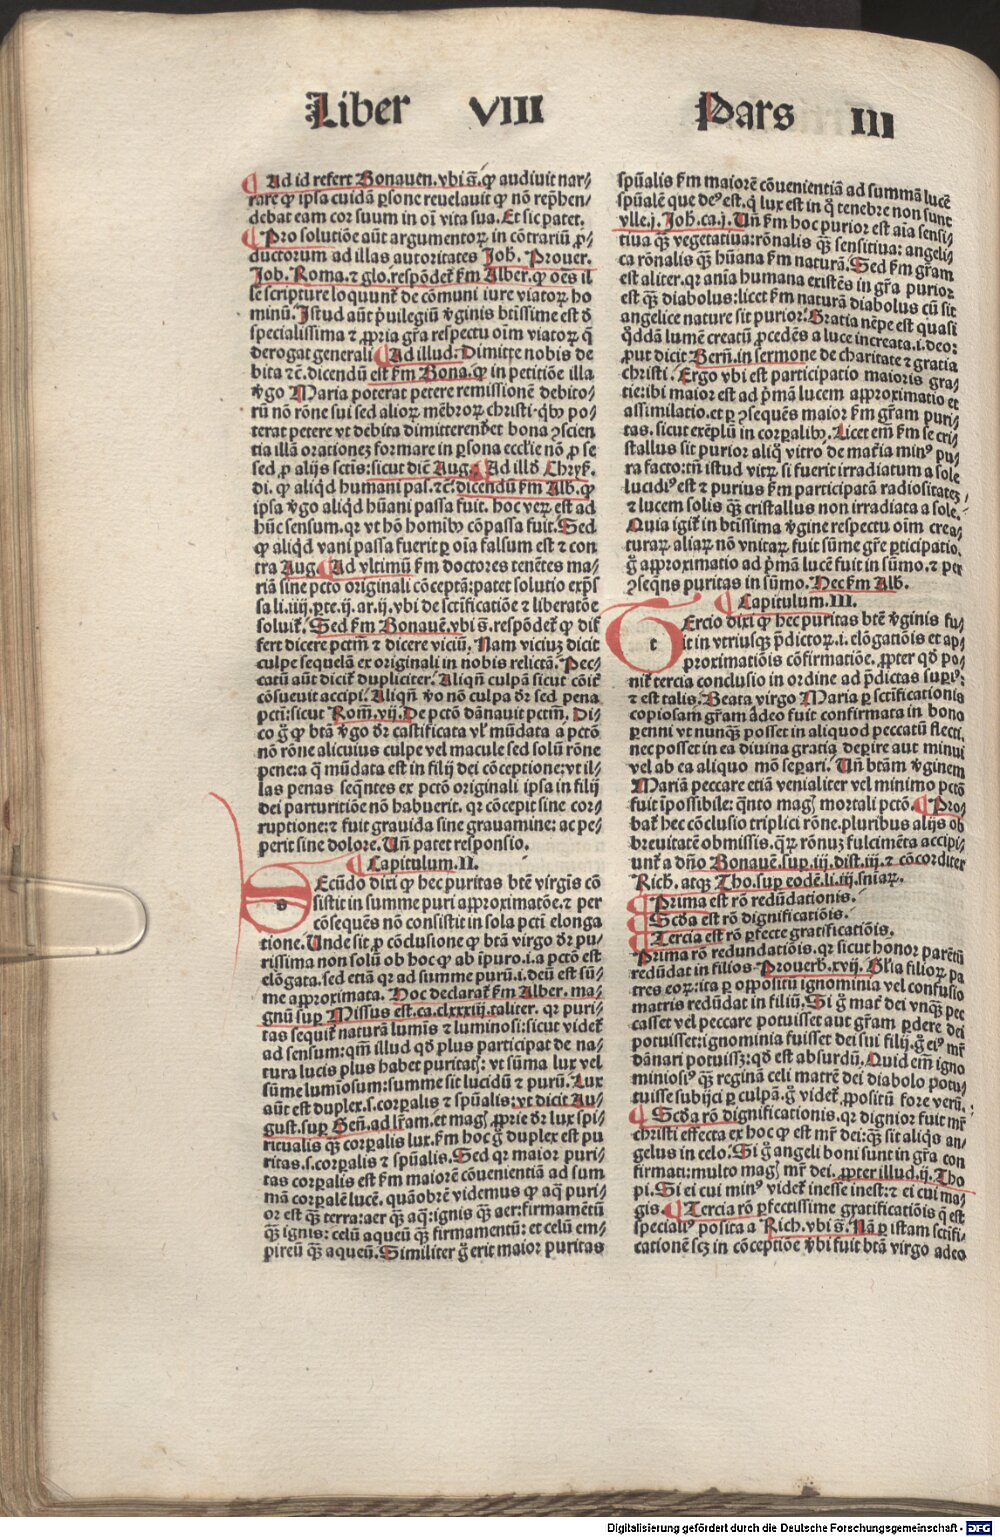 Liber VIII Pars III
¶ Ad id refert Bonauen. vbi s̄. ꝙ audiuit nar⸗
rare ꝙ ipsa cuidā ꝑsone reuelauit ꝙ nō rep̄hen⸗
debat eam cor suum in oī vita sua. Et sic patet.
¶ Pro solutiōe aūt argumentoꝝ in cōtrariū ꝓ⸗
ductorum ad illas autoritates Job. Prouer.
Joh. Roma. ⁊ glo. respōdet ẜm Alber. ꝙ oēs il
le scripture loquunt̄ de cōmuni iure viatoꝝ ho
minū. Istud aūt p̄uilegiū v̄ginis btīssime est ō
specialissima ⁊ ꝓpria gr̄a respectu oīm viatoꝝ q̄
derogat generali ¶ Ad illud. Dimitte nobis de
bita ⁊c̄. dicendū est ẜm Bona. ꝙ in petitiōe illa
v̄go Maria poterat petere remissionē debito⸗
rū nō rōne sui sed alioꝝ mēbroꝝ christi. qb᷒ po⸗
terat petere vt debita dimitterent̄
tia illā orationeꝫ formare in ꝑsona eccl̄ie nō ꝓ se
sed ꝓ alijs sctīs: sicut dic̄ Aug. ¶ Ad illō Chrys.
di. ꝙ aliqd humani pas. ⁊c̄. dicendū ẜm Alb. ꝙ
ipsa v̄go aliqd hūani passa fuit. hoc veꝝ est ad
hūc sensum. qꝛ vt hō homib᷒ cōpassa fuit. Sed
ꝙ aliqd vani passa fuerit ꝑ oīa falsum est ⁊ con
tra Aug. ¶ Ad vltimū ẜm doctores tenētes ma⸗
riā sine pctō originali cōceptā: patet solutio exp̄s
sa li. iiij. ꝑte. ij. ar. ij. vbi de sctīficatiōe ⁊ liberatōe
soluit̄. Sed ẜm Bonauē. vbi s̄. respōdet̄ ꝙ dif
fert dicere pctm̄ ⁊ dicere viciū. Nam viciuꝫ dicit
culpe sequelā ex originali in nobis relictā. Pec⸗
catū aūt dicit̄ dupliciter. Aliqn̄ culpā sicut cōit̄
cōsueuit accipi. Aliqn̄ v̄o nō culpa dr̄ sed pena
pctī: sicut Rom̄. vij. De pctō dānauit pctm̄. Di⸗
co g̊ ꝙ btā v̄go dr̄ castificata vl̄ mūdata a pctō
nō rōne alicuius culpe vel macule sed solū rōne
pene: a q̄ mūdata est in filij dei cōceptione: vt il⸗
las penas seqn̄tes ex pctō originali ipsa in filij
dei parturitiōe nō habuerit. qꝛ cōcepit sine cor⸗
ruptione: ⁊ fuit grauida sine grauamine: ac pe⸗
perit sine dolore. Un̄ patet responsio.
¶ Capitulum. II.
s Ecūdo dixi ꝙ hec puritas btē virgīs cō
sistit in summe puri approximatōe. ⁊ per
cōsequēs nō consistit in sola pctī elonga
tione. Unde sit ꝓ cōclusione ꝙ btā virgo dr̄ pu⸗
rissima non solū ob hoc ꝙ ab īpuro. i. a pctō est
elōgata. sed etiā qꝛ ad summe purū. i. deū est sū⸗
me approximata. Hoc declarat̄ ẜm Alber. ma⸗
gnū suꝑ Missus est. ca. clxxxiij. taliter. qꝛ puri⸗
tas sequit̄ naturā lumīs ⁊ luminosi: sicut videt̄
ad sensum: qm̄ illud qd̄ plus participat de na⸗
tura lucis plus habet puritat̄: vt sūma lux vel
sūme lumiosum: summe sit lucidū ⁊ purū. Lux
aūt est duplex. s. corꝑalis ⁊ spūalis: vt dicit Au⸗
gust. suꝑ Gen̄. ad lr̄am. et maḡ ꝓprie dr̄ lux spi⸗
ritualis qꝫ corꝑalis lux. ẜm hoc g̊ duplex est pu
ritas. s. corꝑalis ⁊ spūalis. Sed qꝛ maior puri⸗
tas corꝑalis est ẜm maiorē cōuenientiā ad sum
mā corꝑalē lucē. quāobrē videmus ꝙ aq̄ puri⸗
or est qꝫ terra: aer qꝫ aq̄: ignis qꝫ aer: firmamētū
qꝫ ignis: celū aqueū qꝫ firmamentū: et celū em⸗
pireū qꝫ aqueū. Similiter g̊ erit maior puritas
spūalis ẜm maiorē cōuenientiā ad summā lucē
spūalē que de᷒ est. q̄ lux est in q̄ tenebre non sunt
vlle. j. Joh. ca. j. Un̄ ẜm hoc purior est aīa sensi⸗
tiua qꝫ vegetatiua: rōnalis qꝫ sensitiua: angeli⸗
ca rōnalis qꝫ hūana ẜm naturā. Sed ẜm gr̄am
est aliter. qꝛ anīa humana existēs in gr̄a purior
est qꝫ diabolus: licet ẜm naturā diabolus cū sit
angelice nature sit purior. Gratia nēpe est quasi
qddā lumē creatū ꝓcedēs a luce increata. i. deo:
ꝓut dicit Bern̄. in sermone de charitate ⁊ gratia
christi. Ergo vbi est participatio maioris gra⸗
tie: ibi maior est ad p̄mā lucem approximatio et
assimilatio. et ꝑ ꝯsequēs maior ẜm gr̄am puri⸗
tas. sicut exēplū in corꝑalib᷒. Licet em̄ ẜm se cri⸗
stallus sit purior aliq̄ vitro de mat̄ia min᷒ pu⸗
ra facto: tn̄ istud vitꝝ si fuerit irradiatum a sole
lucidi᷒ est ⁊ purius ẜm participatā radiositateꝫ
⁊ lucem solis qꝫ cristallus non irradiata a sole.
Quia igit̄ in btīssima v̄gine respectu oīm crea⸗
turaꝝ aliaꝝ nō vnitaꝝ fuit sūme gr̄e ꝑticipatio.
g̊ approximatio ad p̄mā lucē fuit in sūmo. ⁊ ꝑ
ꝯseqn̄s puritas in sūmo. Hec ẜm Alb.
¶ Capitulum. III.
t Ercio dixi ꝙ hec puritas btē v̄ginis fu⸗
it in vtriusqꝫ p̄dictoꝝ. i. elōgatiōis et ap⸗
proximatiōis cōfirmatiōe. ꝓpter qd̄ po⸗
nit̄ tercia conclusio in ordine ad p̄dictas suꝑi᷒:
⁊ est talis. Beata virgo Maria ꝑ sctīficationis
copiosam gr̄am adeo fuit confirmata in bono
ꝑenni vt nunqꝫ posset in aliquod peccatū flecti.
nec posset in ea diuina gratia deperire aut minui
vel ab ea aliquo mō seꝑari. Un̄ btām v̄ginem
Mariā peccare etiā venialiter vel minimo pctō
fuit īpossibile: qn̄to maḡ mortali pctō. ¶ Pro⸗
bat̄ hec cōclusio triplici rōne. pluribus alijs ob
breuitatē obmissis. qꝝ rōnuꝫ fulcimēta accipi⸗
unt̄ a dn̄o Bonauē. suꝑ. iij. dist. iij. ⁊ cōcorditer
Rich. atqꝫ Tho. suꝑ eodē. li. iij. sn̄iaꝝ.
¶ Prima est rō redūdationis.
¶ Scd̄a est rō dignificatiōis.
¶ Tercia est rō ꝑfecte gratificatiōis.
Prima rō redundatiōis. qꝛ sicut honor parētū
redūdat in filios. Prouerb. xvij. Gl̄ia filioꝝ pa
tres eoꝝ: ita ꝑ oppositū ignominia vel confusio
matris redūdat in filiū. Si g̊ mat̄ dei vnqꝫ pec
casset vel peccare potuisset aut gr̄am ꝑdere dei
potuisset: ignominia fuisset dei sui filij. g̊ ei᷒ mr̄
dānari potuissꝫ: qd̄ est absurdū. Quid em̄ igno
miniosi᷒ qꝫ reginā celi matrē dei diabolo potu⸗
tuisse subijci ꝑ culpā. g̊ videt̄ ꝓpositū fore verū.
¶ Scd̄a rō dignificationis. qꝛ dignior fuit mr̄
christi effecta ex hoc ꝙ est mr̄ dei: qꝫ sit aliqs an⸗
gelus in celo. Si g̊ angeli boni sunt in gr̄a con
firmati: multo maḡ mr̄ dei. ꝓpter illud. ij. Tho
pi. Si ei cui min᷒ videt̄ inesse inest: ⁊ ei cui ma⸗
gis. ¶ Tercia rō ꝑfectissime gratificatiōis q̄ est
speciali᷒ posita a Rich. vbi s̄. Nā ꝑ istam sctīfi⸗
cationē scꝫ in cōceptiōe v̄bi fuit btā virgo adeo
Digitalisierung gefördert durch die Deutsche Forschungsgemeinschaft - DFG